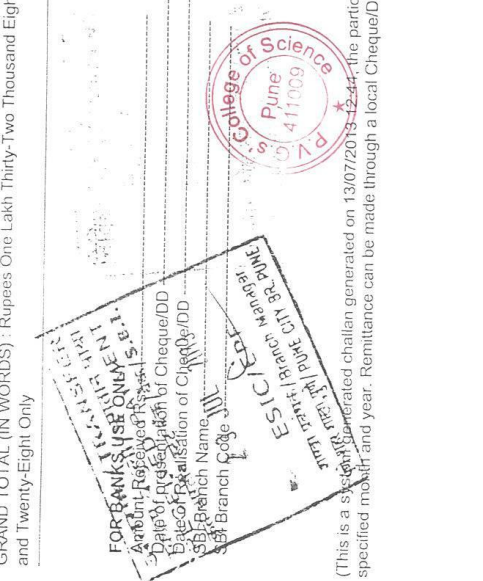 GRAND TOTAL (IN WORDS) : Rupees One Lakh Thirty-Two Thousand Eigh
and Twenty-Eight Only
FOR BANKS USE ONLY
Amount Received Rs.
Date of presentation of Cheque/DD
Date of Realisation of Cheque/DD
SBI Branch Name
SBI Branch Code
TRANSFER
S.B.I.
JUL
ESIC/
/ Branch Manager
/ PUNE CITY BR. PUNE.
P.V.G'S College of Science
Pune
411009
★
(This is a system generated challan generated on 13/07/2013 12:44, the partic
specified month and year. Remittance can be made through a local Cheque/D